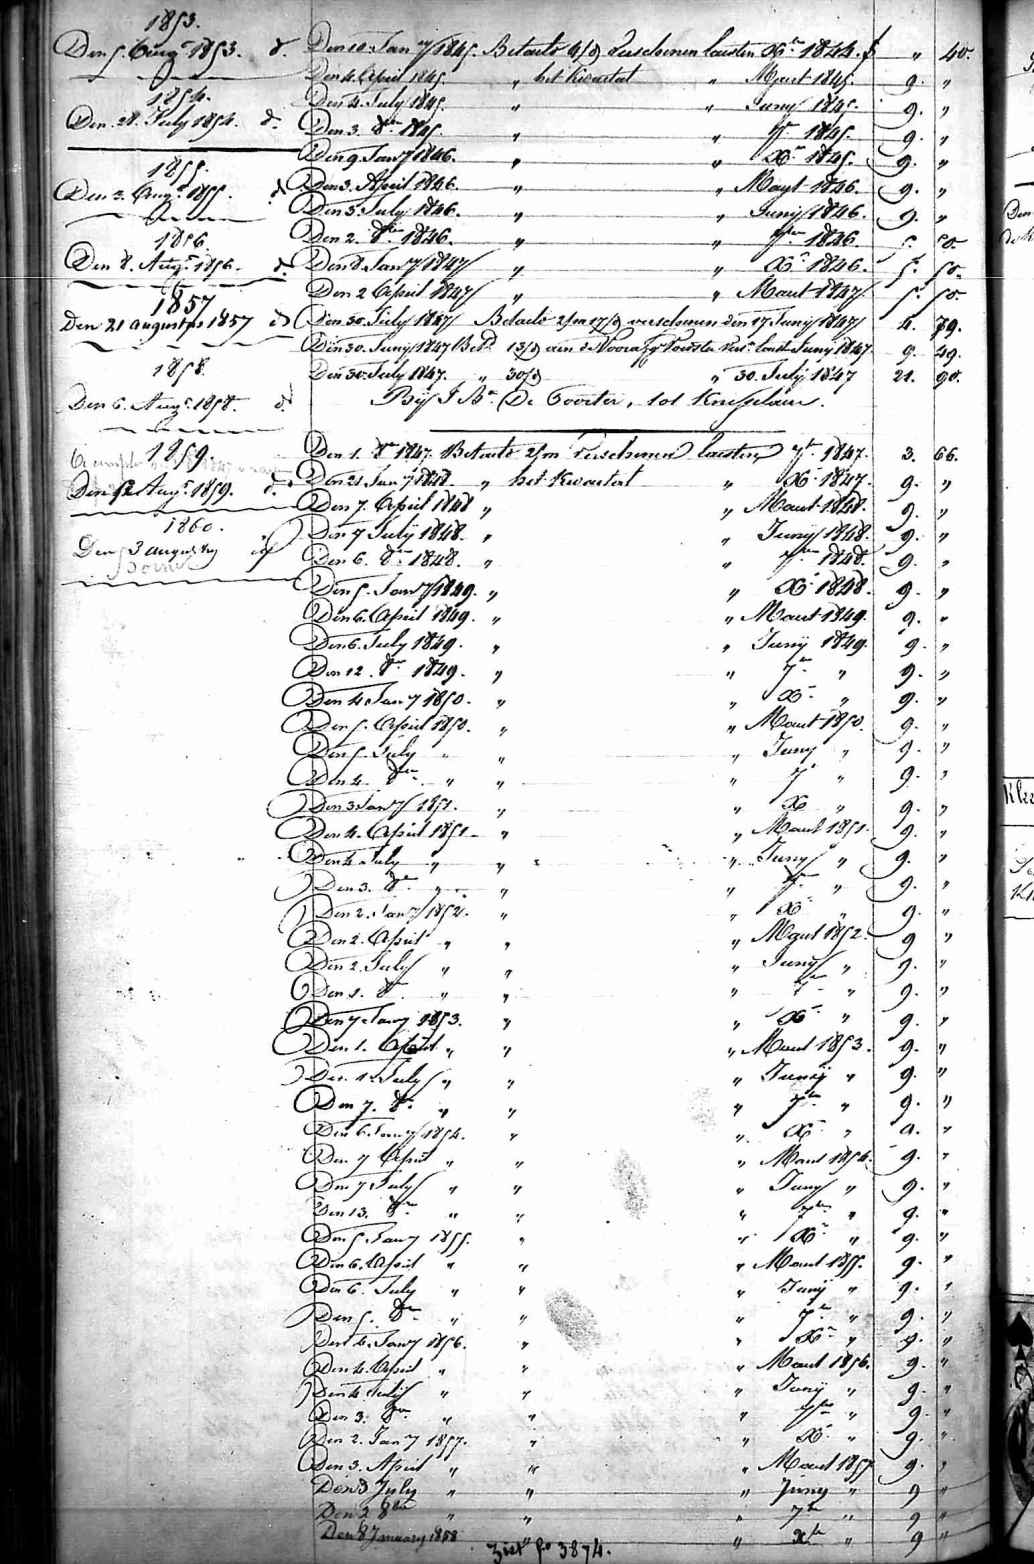 1853.
Den 5. Augt. 1853. d°
1854.
Den 28. July 1854. d°.
1855.
Den 3. Augt. 1855. d°
1856.
Den 8. Augt. 1856. d°.
1857
Den 21 augustus 1857 d°
1858.
Den 6. Augt. 1858. d°
1859.
Den 12 Augt. 1859. d°.
1860.
Den 3 augustus d°
Den 10. Jany 1845. Betaald 4/d Verschenen lausten Xr 1844. f " 40.
Den 4. April 1845. " het Kwartaal " Maart 1845. 9. "
Den 4. July 1845. " " Juny 1845. 9. "
Den 3. 8er 1845. " " 7r 1845. 9. "
Den 9. Jany 1846. " " Xr 1845. 9. "
Den 3. April 1846. " " Maart 1846. 9. "
Den 3. July 1846. " " Juny 1846. 9. "
Den 2. 8er 1846. " " 7er 1846. 5. 50.
Den 8. Jany 1847 " " Xr 1846. 5. 50.
Den 2 April 1847 " " Maart 1847 5. 50.
Den 30. July 1847 Betaald 2/m 17/d verschenen den 17 Juny 1847 4. 79.
Den 30. Juny 1847 Betd. 13/d aen de Voorzorg Verst. laust Juny 1847 9. 49.
Den 30. July 1847. " 30/d " 30. July 1847 21. 90.
Bij J. Bte. De Coorter, tot Knesselaere.
Den 1. 8r 1847. Betaald 2/m Verschenen lausten 7r 1847. 3. 66.
Den 21 Jany 1848. " het Kwartaal " Xr 1847. 9. "
Den 7. April 1848 " " Maart 1848. 9. "
Den 7 July 1848. " " Juny 1848. 9. "
Den 6. 8er 1848. " " 7er 1848. 9. "
Den 5. Jany 1849. " " Xr 1848. 9. "
Den 6. April 1849. " " Maart 1849. 9. "
Den 6. July 1849. " " Juny 1849. 9. "
Den 12. 8er 1849. " " 7er " 9. "
Den 4 Jany 1850. " " Xr " 9. "
Den 5. April 1850. " " Maart 1850. 9. "
Den 5. July " " " Juny " 9. "
Den 4. 8er " " " 7r " 9. "
Den 3 Jany 1851. " " X " 9. "
Den 4. April 1851. " " Maart 1851. 9. "
Den 4 July " " " Juny " 9. "
Den 3. 8er " " " 7er " 9. "
Den 2. Jany 1852. " " Xr " 9. "
Den 2. April " " " Maart 1852. 9 "
Den 2. July " " " Juny " 9. "
Den 1. 8r " " " 7er " 9. "
Den 7 Jany 1853. " " Xr " 9. "
Den 1. April " " " Maart 1853. 9. "
Den 1. July " " " Juny " 9. "
Den 7. 8er " " " 7er " 9. "
Den 6. Jany 1854. " " Xr " 9. "
Den 7 April " " " Maart 1854. 9. "
Den 7 July " " " Juny " 9. "
Den 13. 8er " " " 7er " 9. "
Den 5. Jany 1855. " " Xr " 9. "
Den 6. April " " " Maart 1855. 9. "
Den 6. July " " " Juny " 9. "
Den 5. 8er " " " 7er " 9. "
Den 4. Jany 1856. " " Xr " 9. "
Den 4. April " " " Maart 1856. 9. "
Den 4 July " " " Juny " 9. "
Den 3. 8er " " " 7er " 9. "
Den 2. Jany 1857. " " Xr " 9. "
Den 3. April " " " Maart 1857 9. "
Den 3 July " " " Juny " 9 "
Den 2 8er " " " 7er " 9 "
Den 8 January 1858 " " Xr " 9 "
Ziet fo 3874.